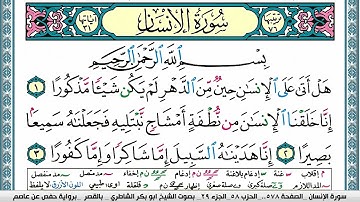 سُورَةُ الْإِنسَانِ
بِسْمِ اللَّهِ الرَّحْمَٰنِ الرَّحِيمِ
هَلْ أَتَىٰ عَلَى الْإِنسَٰنِ حِينٌ مِّنَ الدَّهْرِ لَمْ يَكُن شَيْـًٔا مَّذْكُورًا ١
إِنَّا خَلَقْنَا الْإِنسَٰنَ مِن نُّطْفَةٍ أَمْشَاجٍ نَّبْتَلِيهِ فَجَعَلْنَٰهُ سَمِيعًۢا
بَصِيرًا ٢ إِنَّا هَدَيْنَٰهُ السَّبِيلَ إِمَّا شَاكِرًا وَإِمَّا كَفُورًا ٣
سورة الإنسان . الصفحة ٥٧٨ ... الجزء ٢٩ . بصوت الشيخ ابو بكر الشاطري .. بالقصر .. برواية حفص عن عاصم